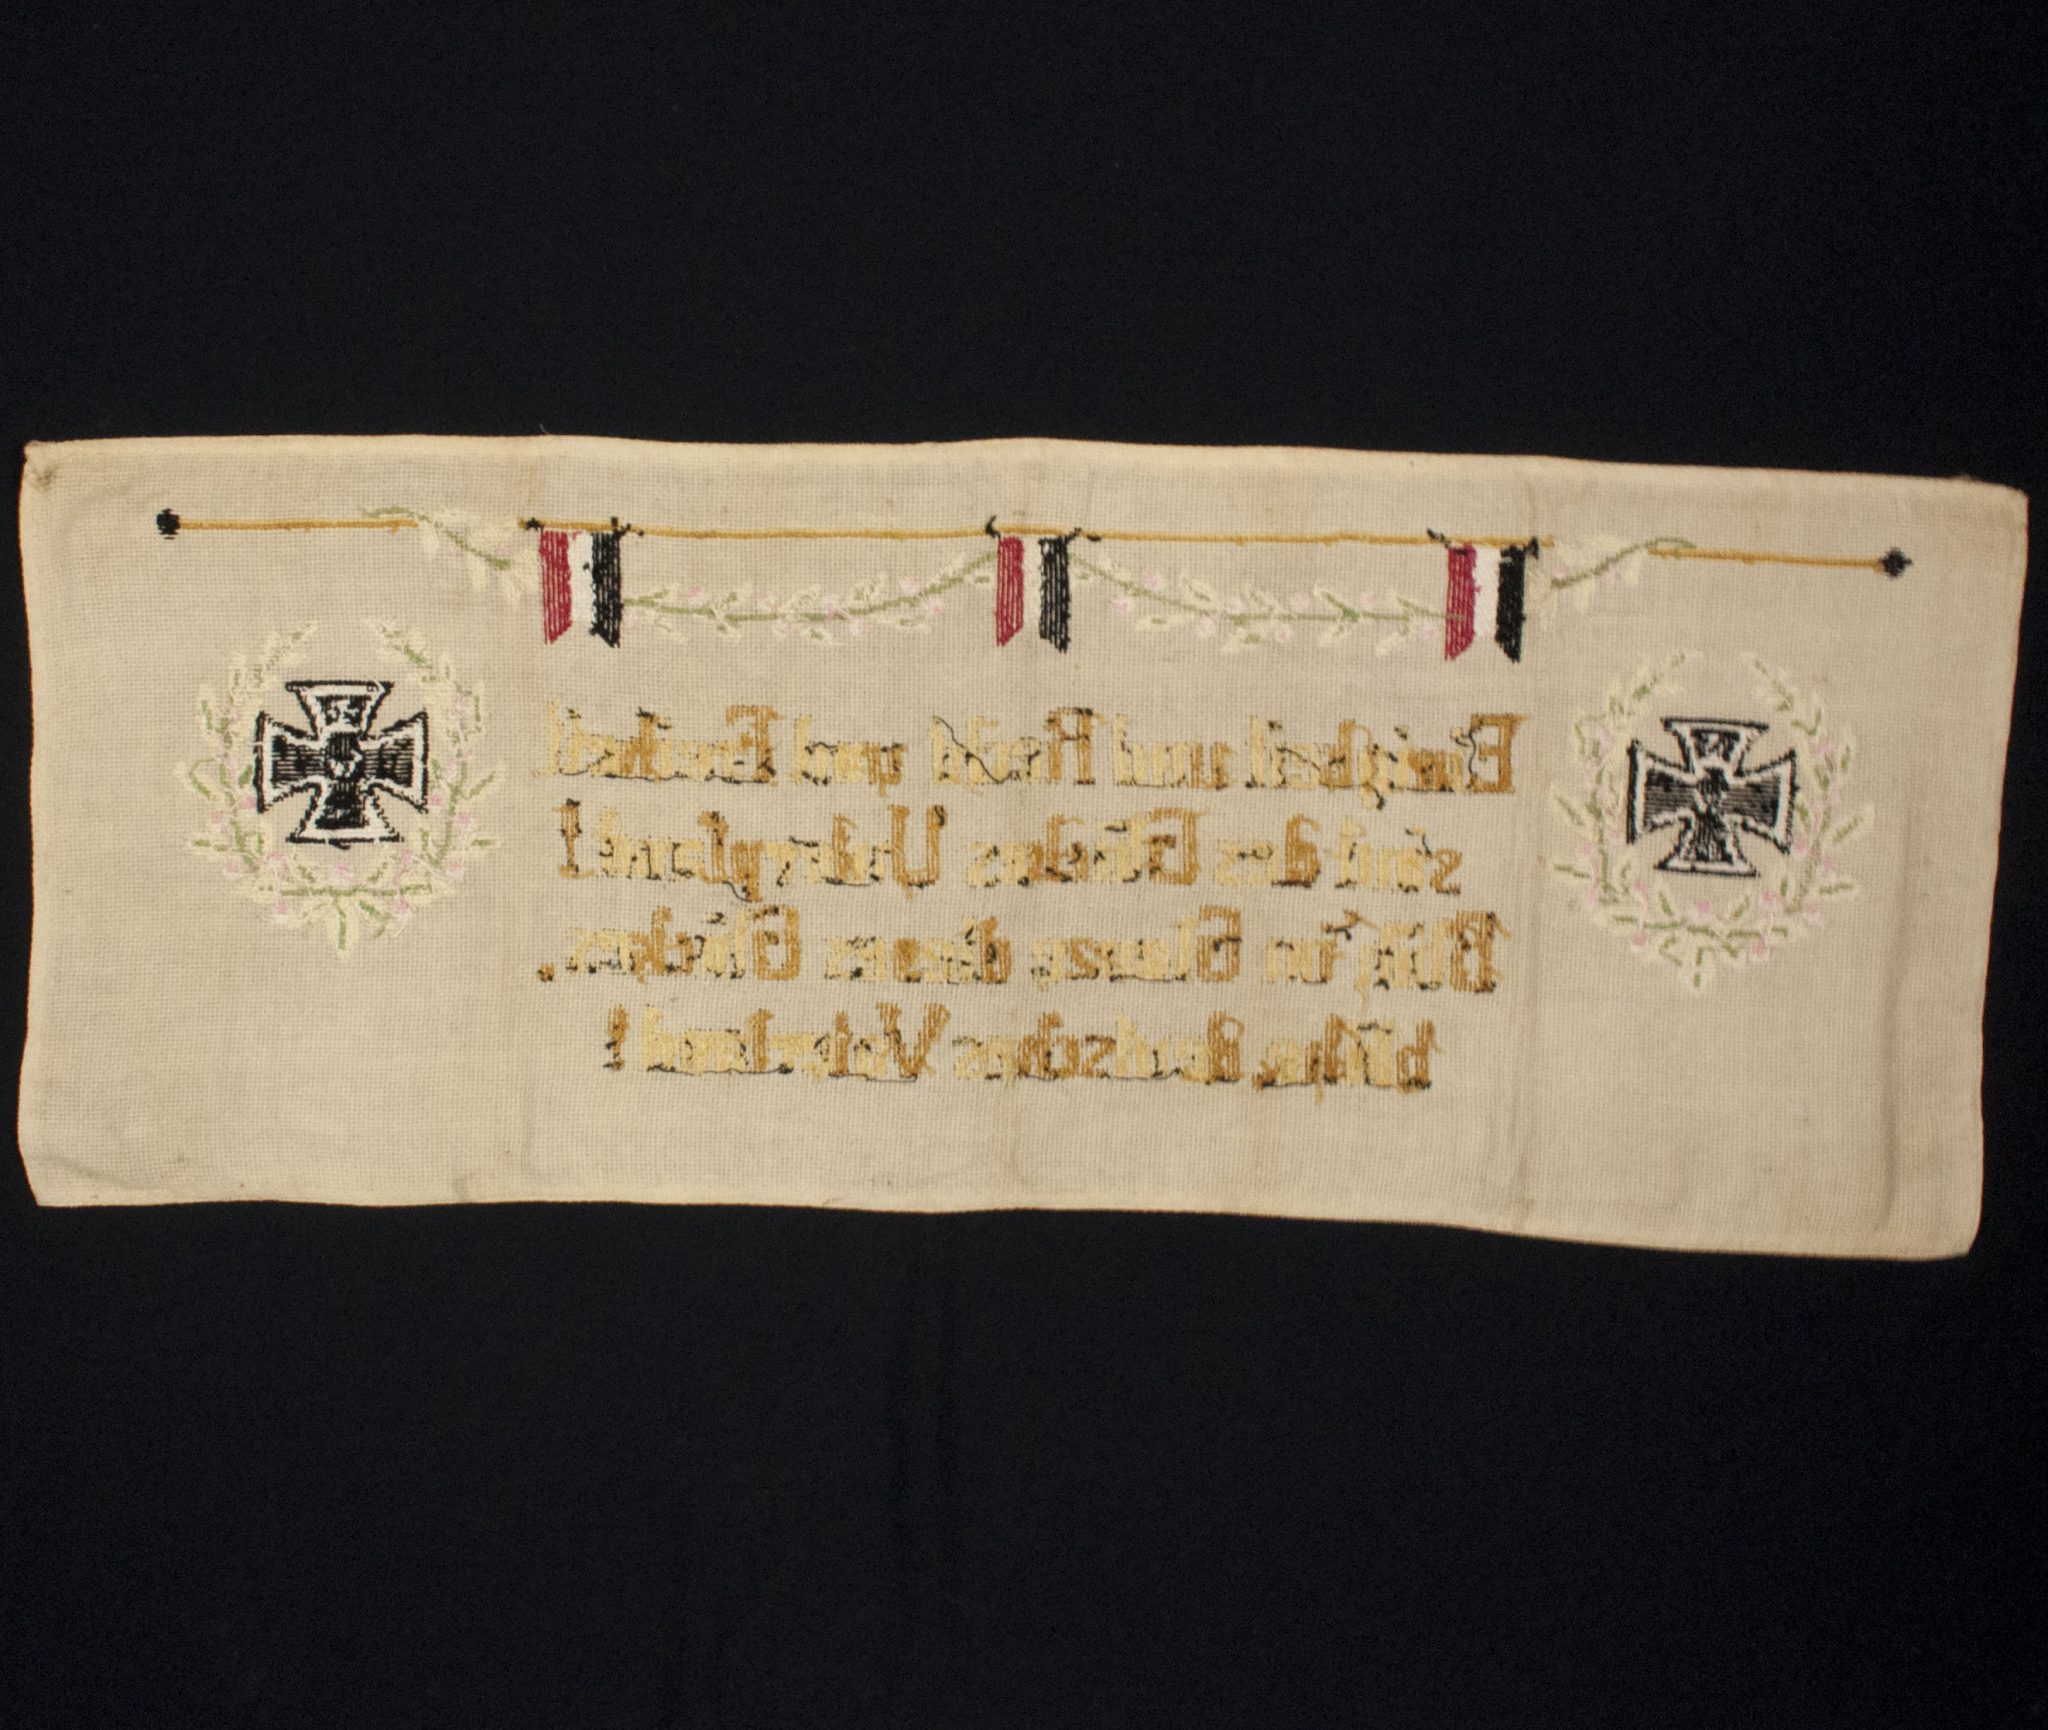 Einigkeit und Recht und Freiheit
sind des Glückes Unterpfand!
Blüh' im Glanze dieses Glückes,
blühe, deutsches Vaterland!